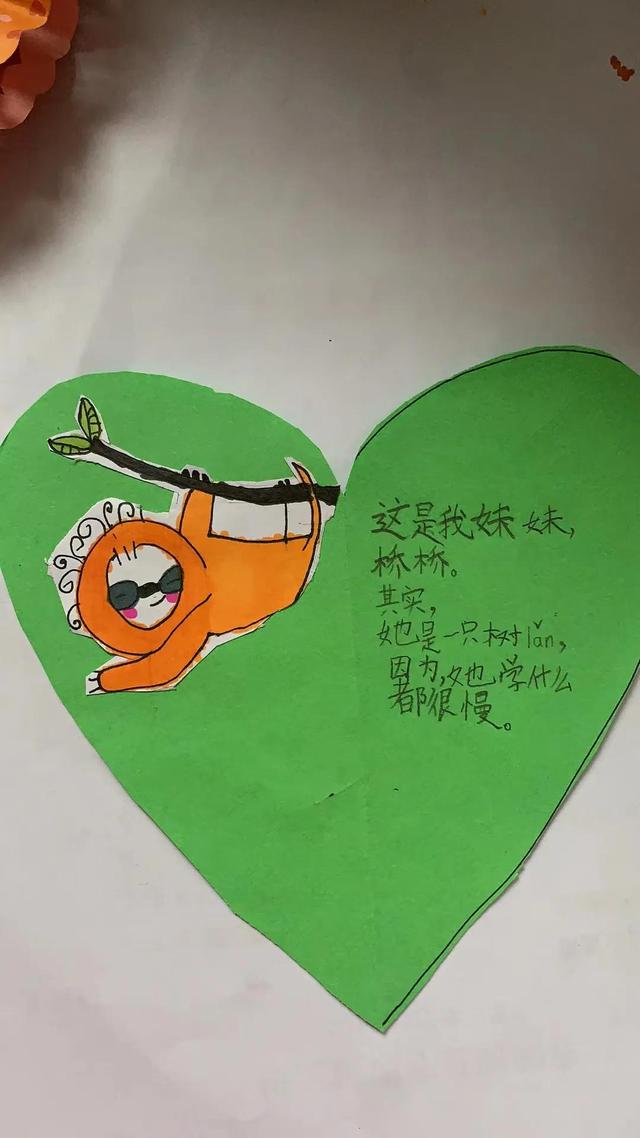 这是我妹妹，
桥桥。
其实，
她是一只树lǎn，
因为，她学什么
都很慢。